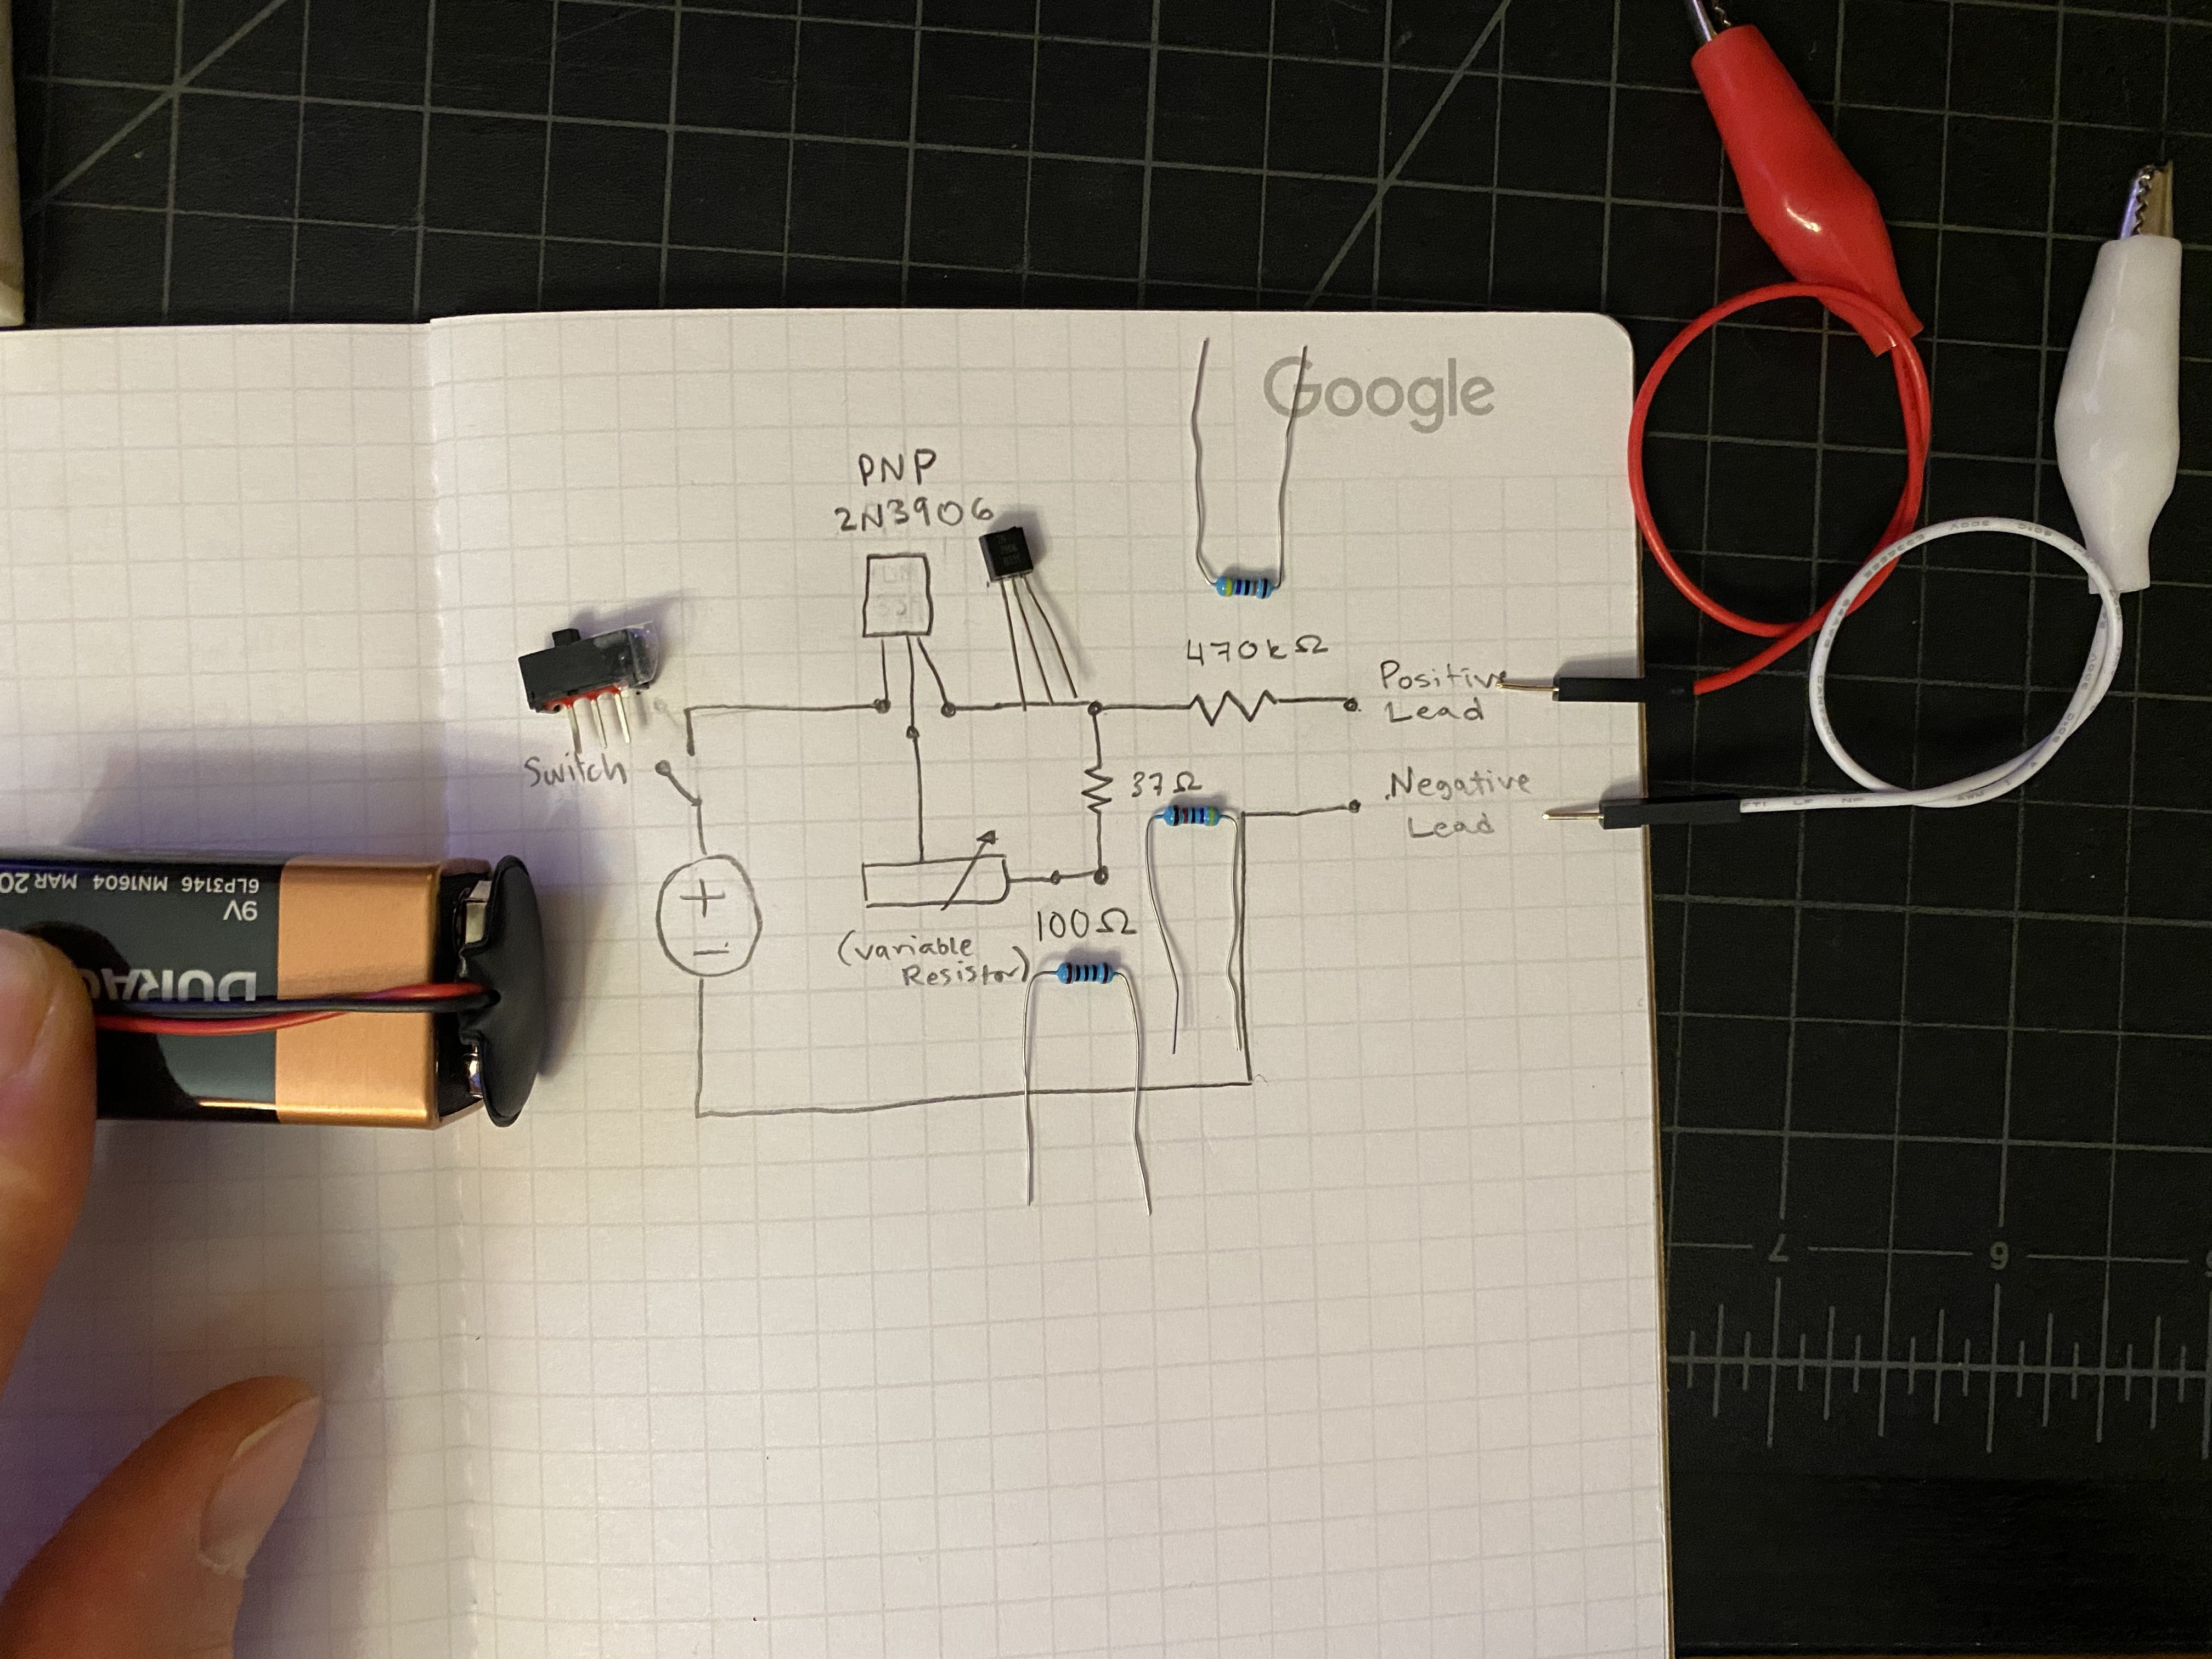 Google
PNP
2N3906
470kΩ
Positive
Lead
Switch
37Ω
Negative
Lead
+
−
100Ω
(variable
Resistor)
6LP3146 MN1604 MAR 20
9V
DURAC
7
6